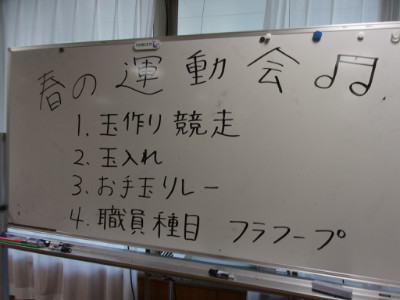 春の運動会♫
1. 玉作り競走
2. 玉入れ
3. お手玉リレー
4. 職員種目 フラフープ